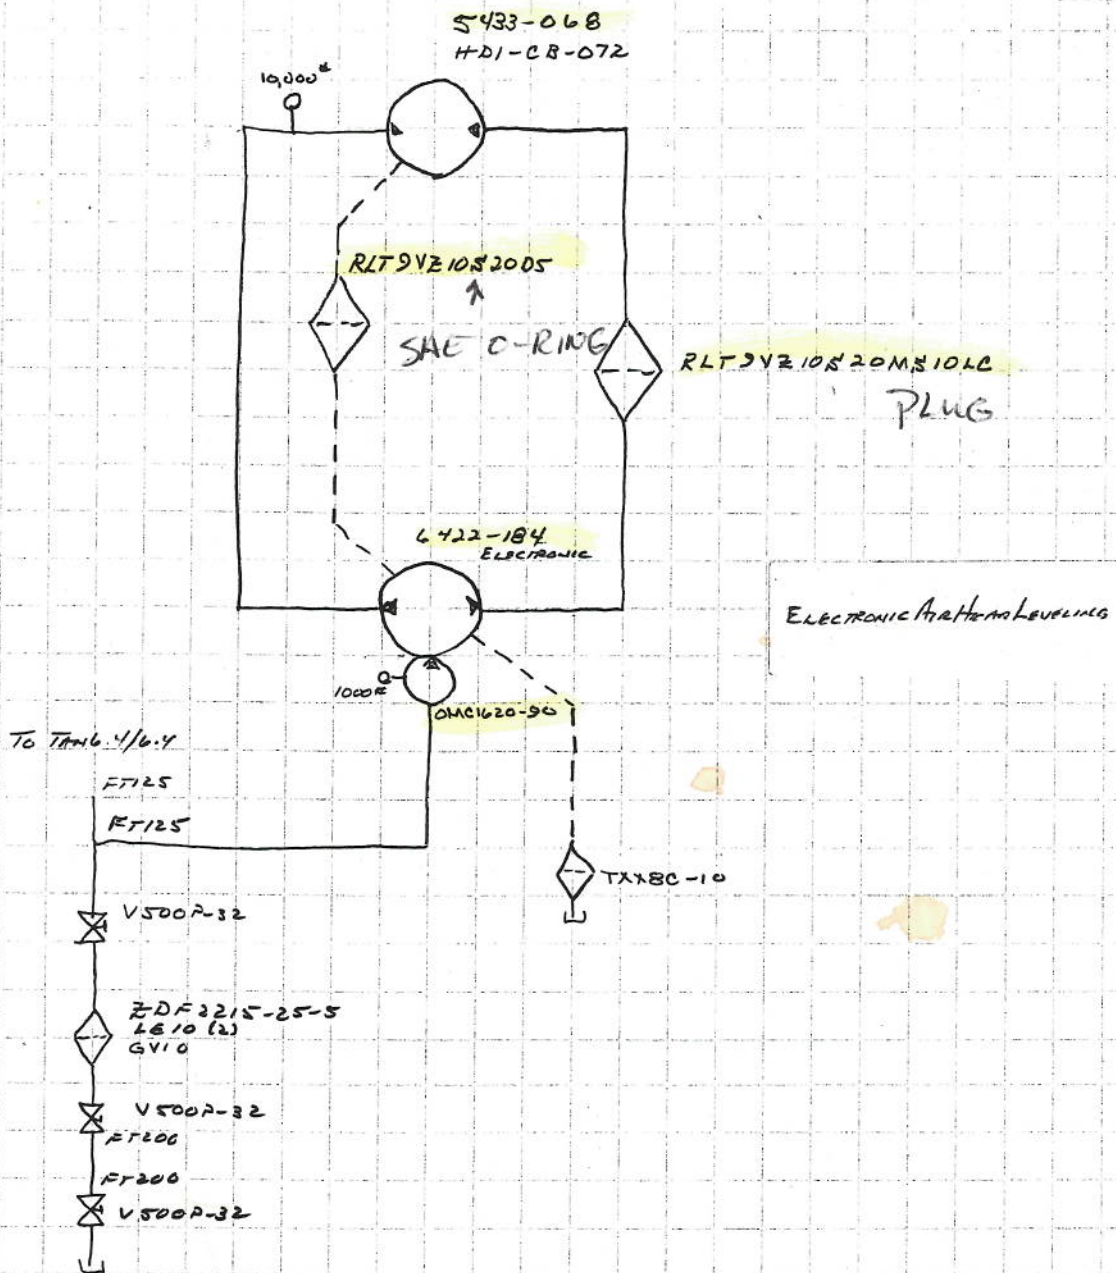 5433-068
HDI-CB-072
10,000#
RLT9VZ10S20D5
SAE O-RING
RLT9VZ10S20MS10LC
PLUG
6422-184
ELECTRONIC
ELECTRONIC AIR HEAD LEVELING
1000#
OMC1620-90
TO TAN6.4/6.4
FT125
FT125
TXX8C-10
V500P-32
ZDF2215-25-5
LE10 (2)
GV10
V500P-32
FT200
FT200
V500P-32